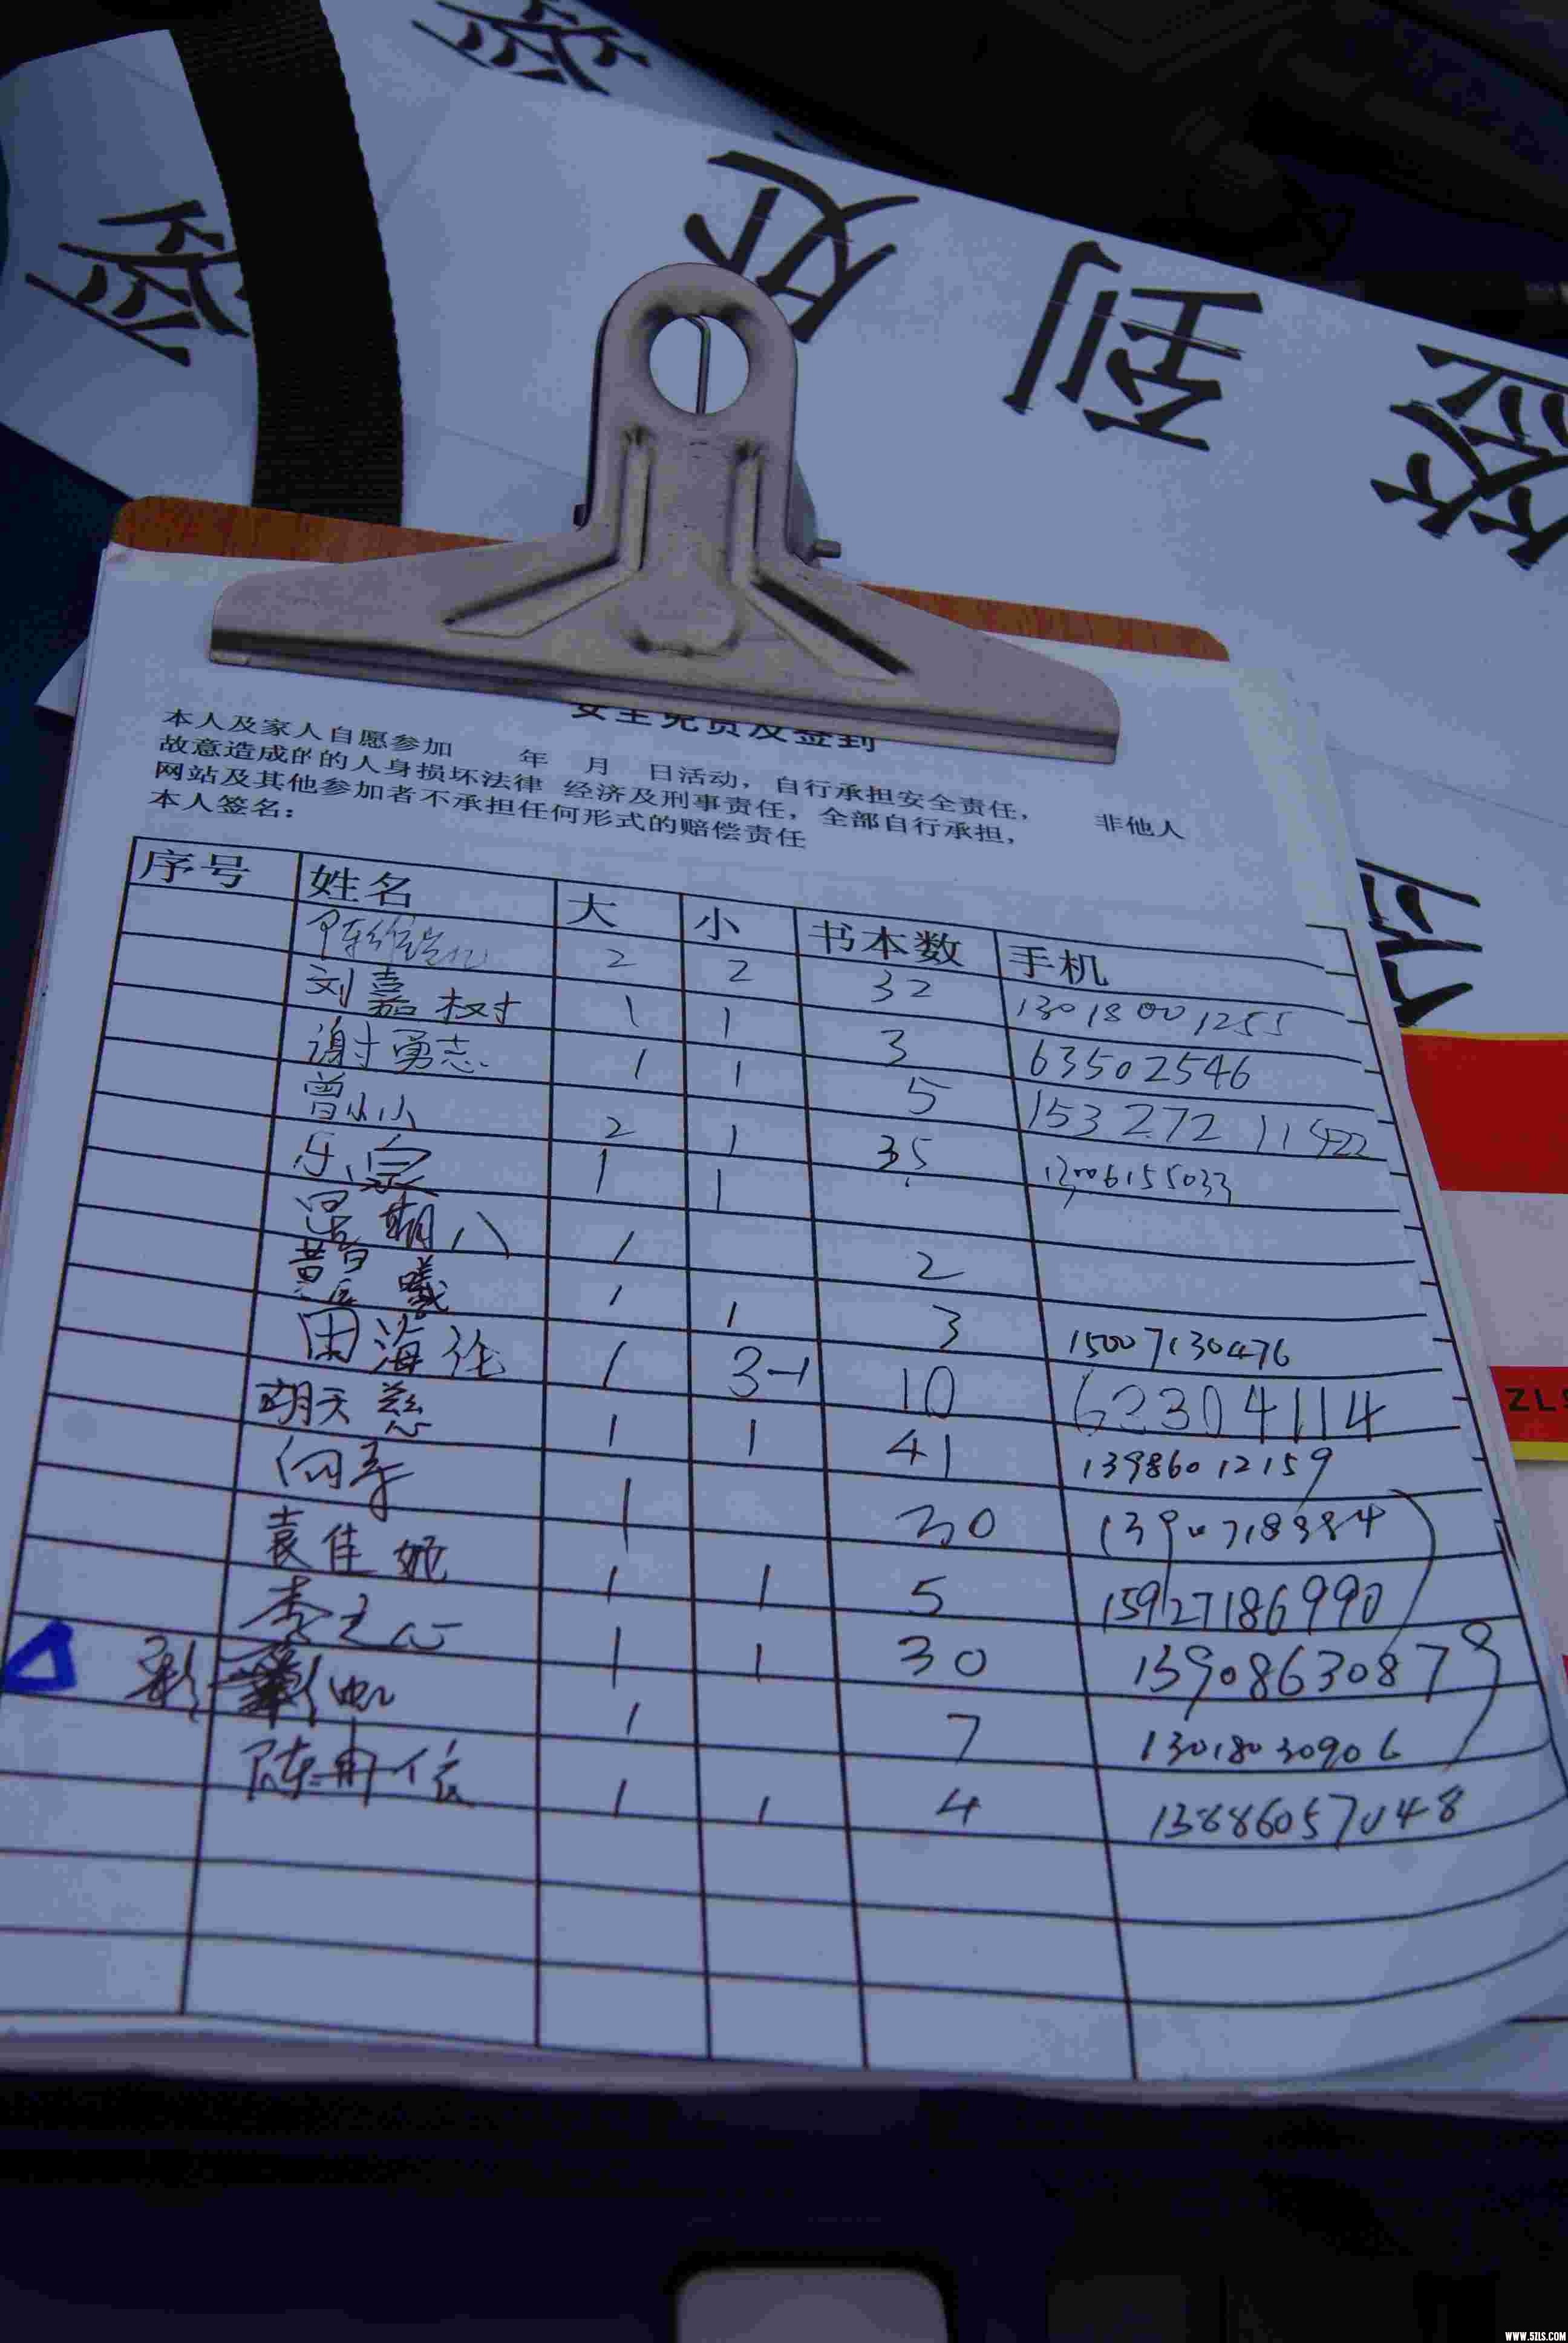 签
处
到
签
签
安全免责及签到
本人及家人自愿参加 年 月 日活动，自行承担安全责任， 非他人
故意造成的的人身损坏法律 经济及刑事责任，全部自行承担，
网站及其他参加者不承担任何形式的赔偿责任
本人签名：
序号 姓名 大 小 书本数 手机
2 2 32 13018001255
刘嘉树 1 1 3 63502546
谢勇志 1 1 5 153272
曾小小 2 1 35 13006155033
乐 1 1
期八 1 2
曦 1 1 3 15007130476
田海伦 1 3-1 10 62304114
胡天慈 1 1 41 13986012159
向 1 30
袁佳妮 1 1 5 15927186990
李之心 1 1 30 13908630878
彭帆 1 7 13018030906
陈冉依 1 1 4 13886057048
ZLS
WWW.5ZLS.COM